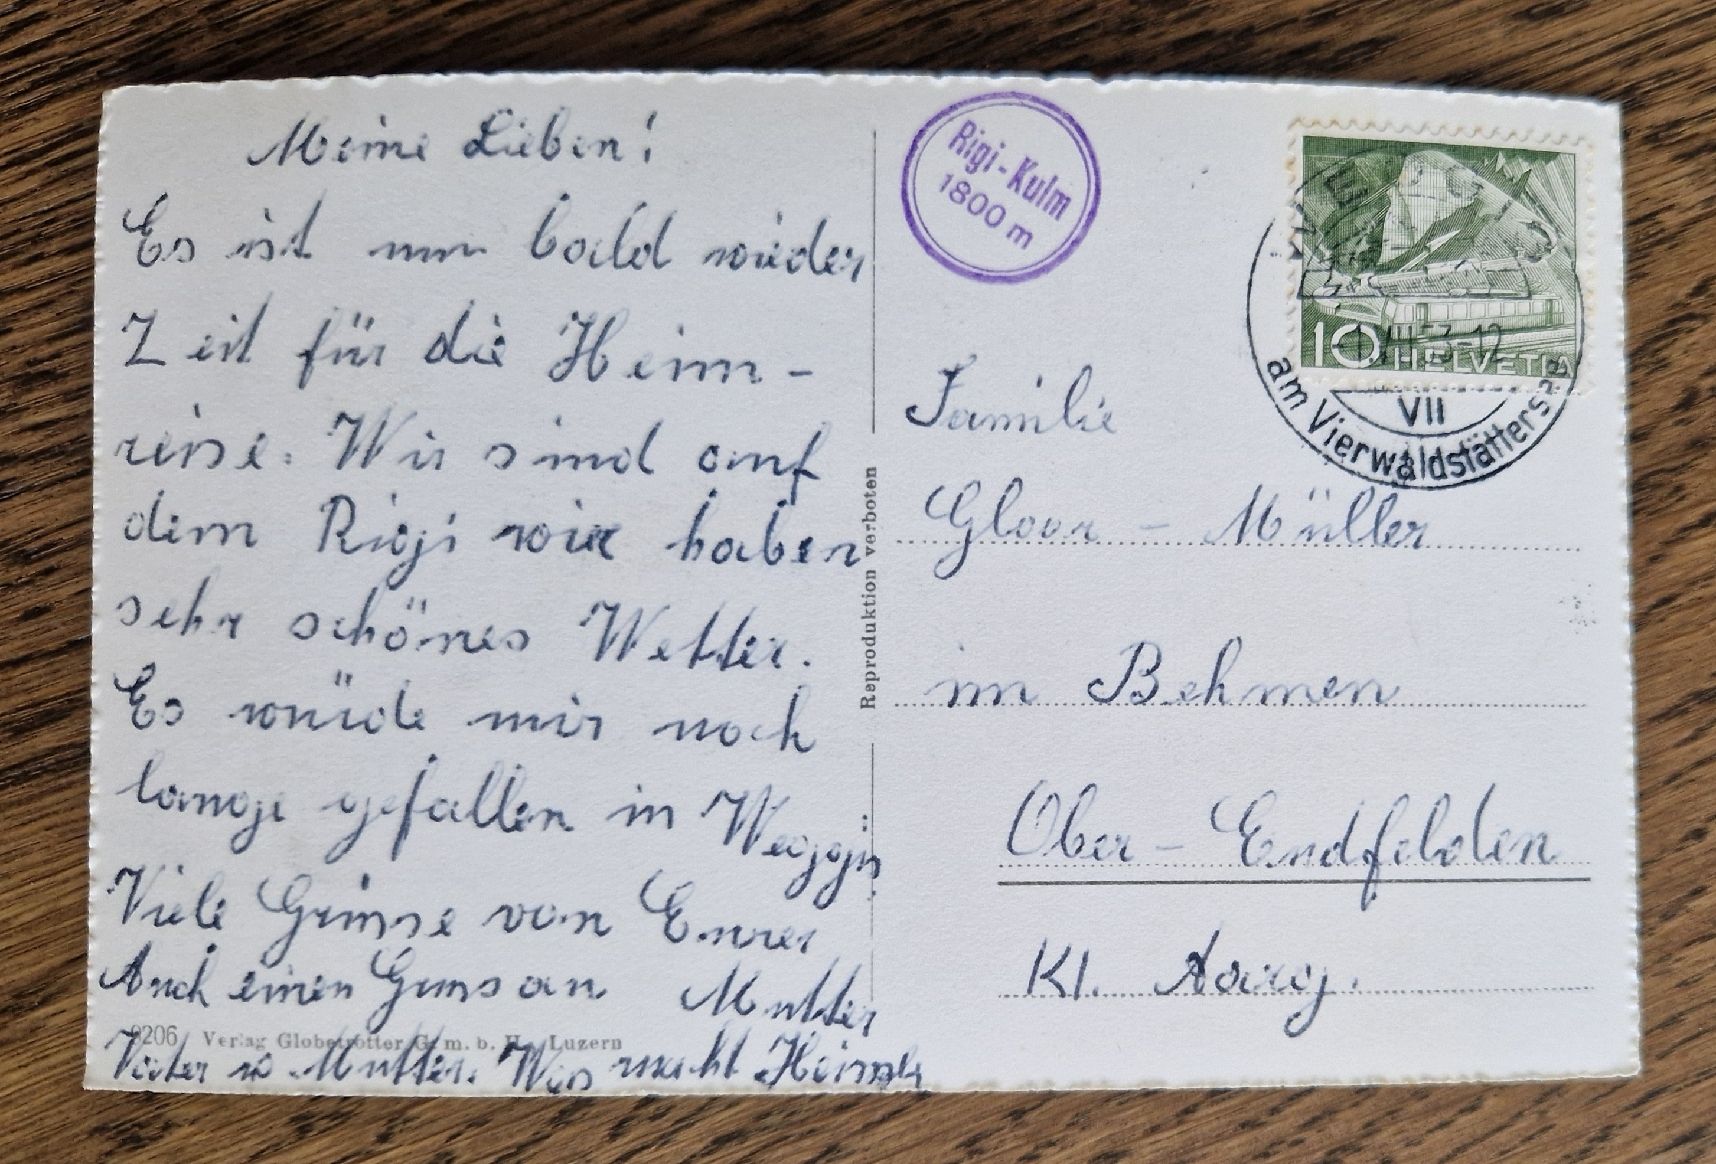 Meine Lieben!
Es ist nun bald wieder
Zeit für die Heim-
reise. Wir sind auf
dem Rigi wir haben
sehr schönes Wetter.
Es würde mir noch
lange gefallen in Weggis
Viele Grüsse von Eurer
Mutter
Auch einen Gruss an
Vater u Mutter. Was macht
9206 Verlag Globetrotter G. m. b. H. Luzern
Reproduktion verboten
Rigi-Kulm
1800 m
10 HELVETIA
VII
am Vierwaldstättersee
Familie
Gloor - Müller
im Behmen
Ober - Endfelden
Kt. Aarg.